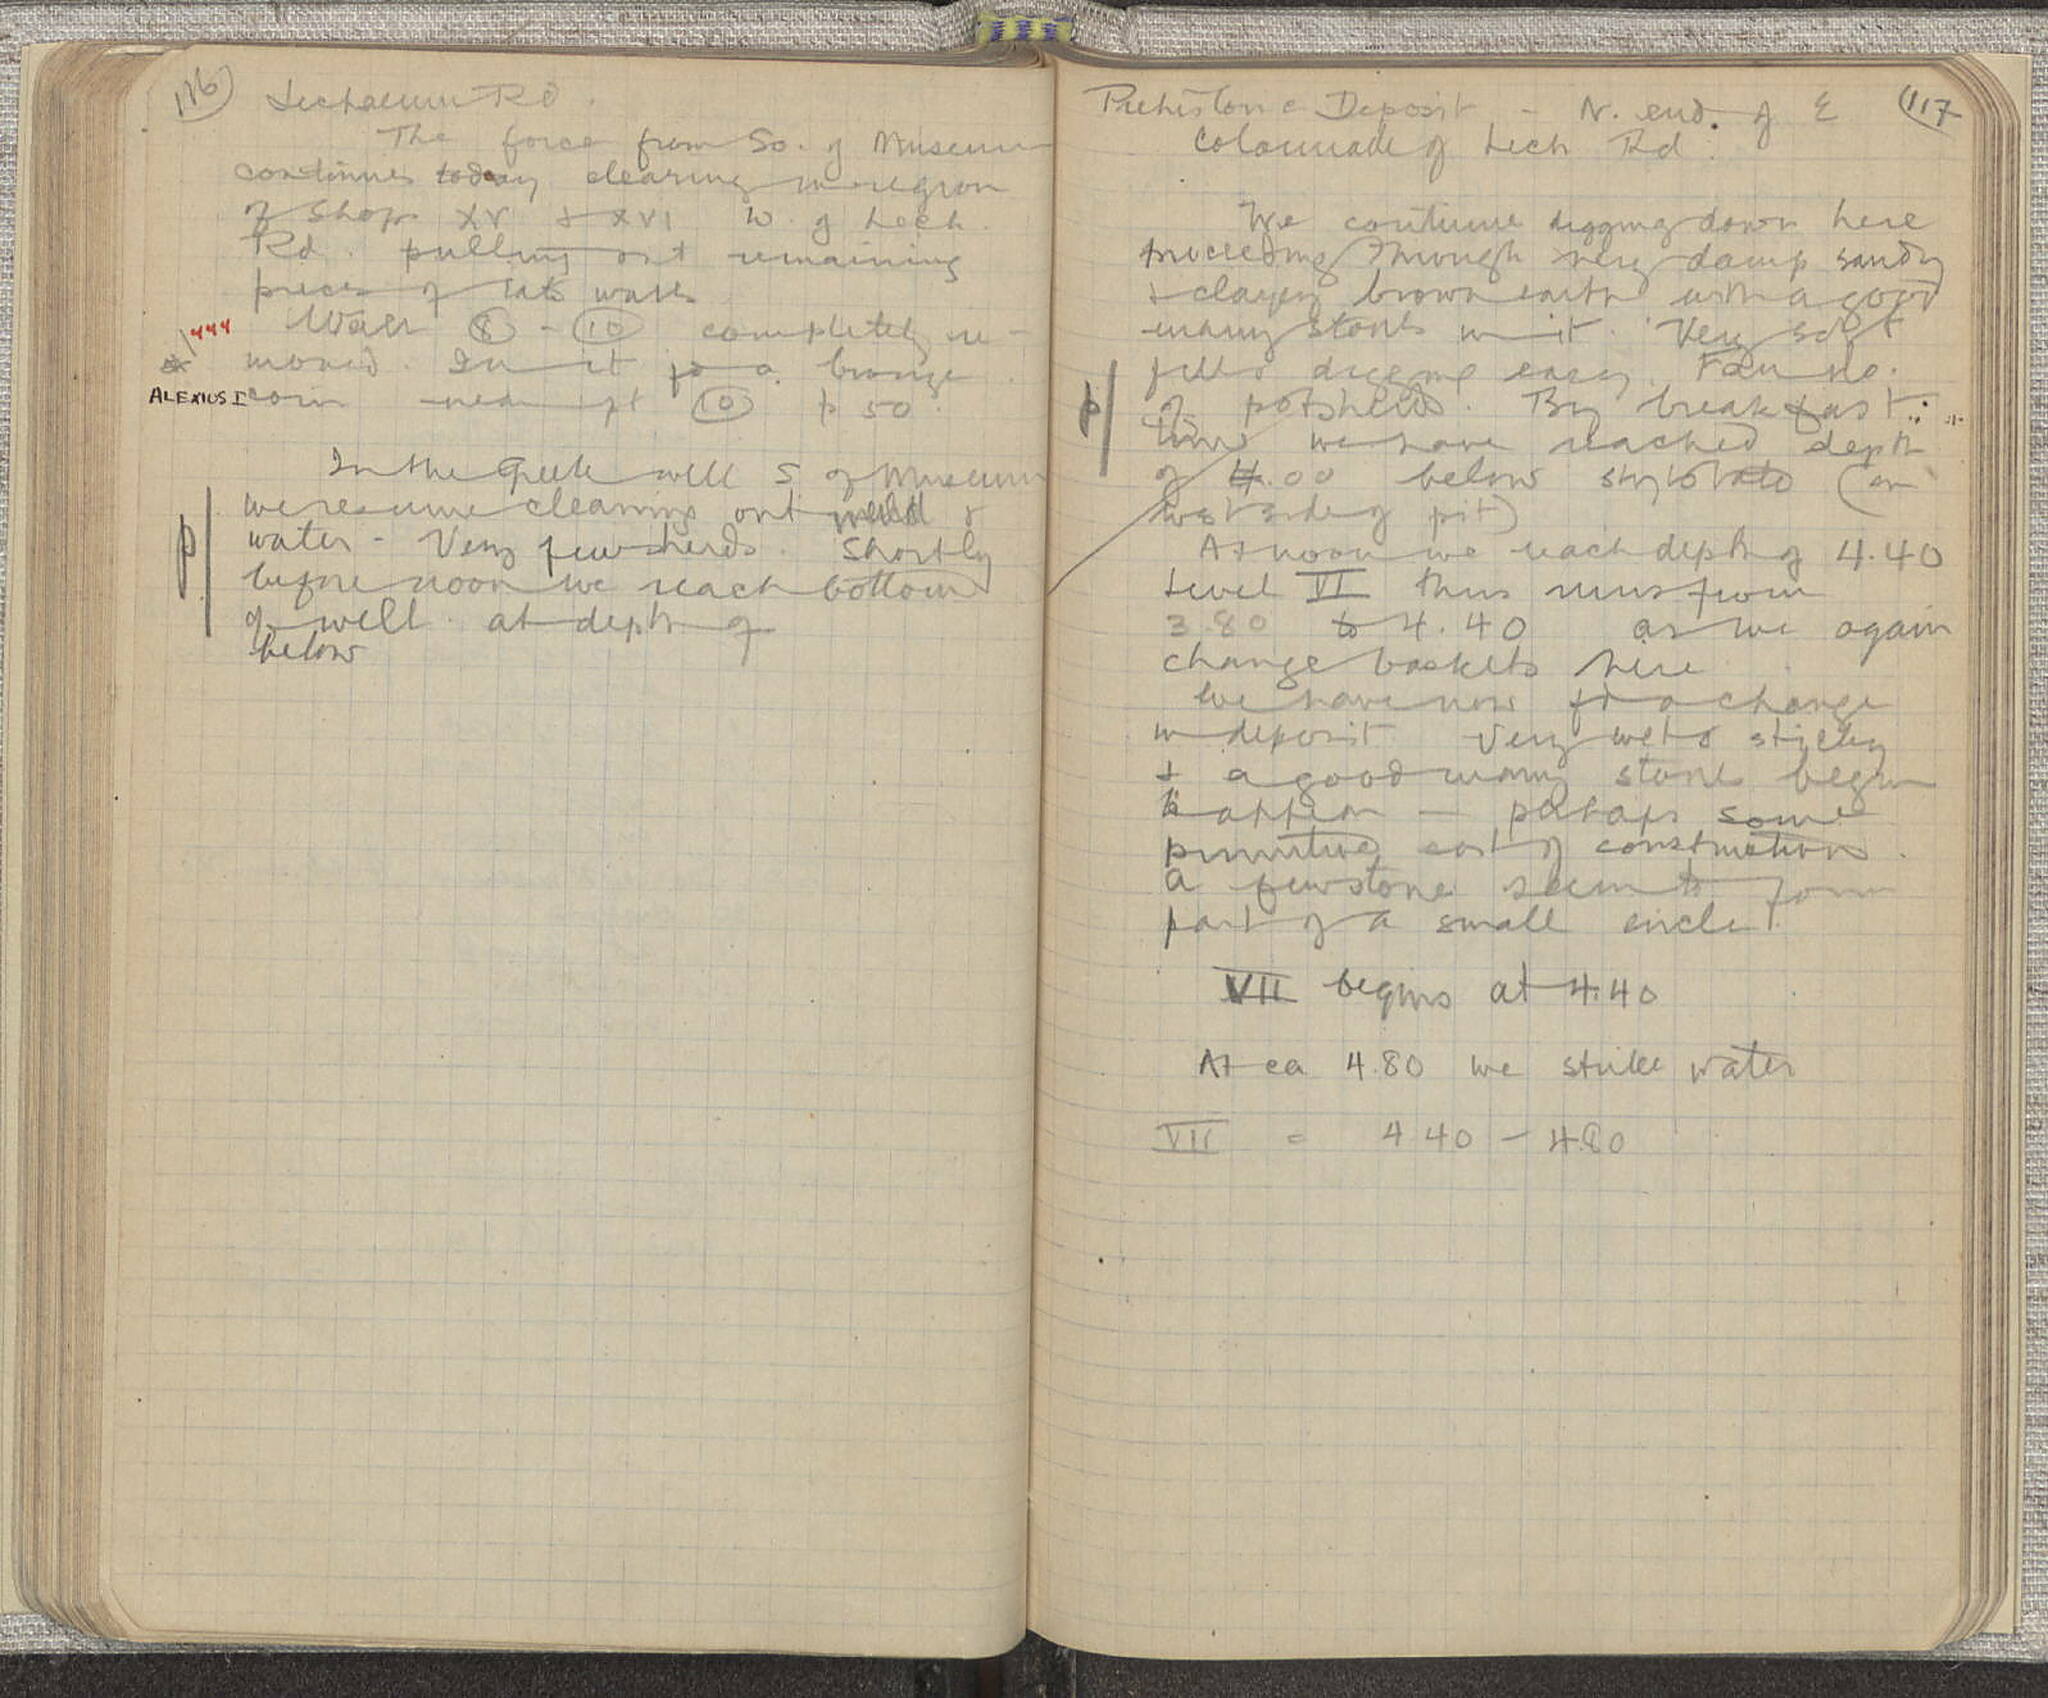 116
Lechaeum Rd.
The force from So. of Museum
continues today clearing in region
of Shops XV & XVI W. of Lech.
Rd. pulling out remaining
pieces of late walls
Wall 8 - 10 completely re-
moved. In it fd a bronze
coin near pt 10 p 50.
444
ALEXIUS I
In the Greek well S of Museum
we resume cleaning out mud &
water - Very few sherds. Shortly
before noon we reach bottom
of well. at depth of
below
p
117
Prehistoric Deposit - N. end. of E
Colonnade of Lech Rd.
We continue digging down here
proceeding through very damp sandy
& clayey brown earth with a good
many stones in it. Very soft
fill & digging easy. Fair no.
of potsherds. By breakfast
time we have reached depth
of 4.00 below stylobate (on
west side of pit)
p
At noon we reach depth of 4.40
Level VI thus runs from
3.80 to 4.40 as we again
change baskets here
We have now fd a change
in deposit Very wet & sticky
& a good many stones begin
to appear — perhaps some
primitive sort of construction.
A few stones seem to form
part of a small circle.
VII begins at 4.40
At ca 4.80 we strike water
VII = 4 40 - 4.80